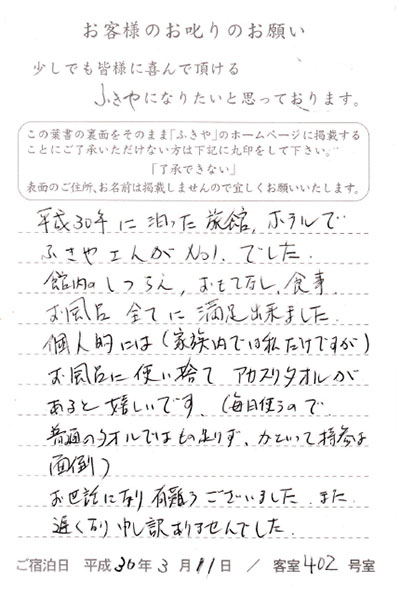 お客様のお叱りのお願い
少しでも皆様に喜んで頂ける
ふきやになりたいと思っております。
この葉書の裏面をそのまま「ふきや」のホームページに掲載する
ことにご了承いただけない方は下記に丸印をして下さい。
「了承できない」
表面のご住所、お名前は掲載しませんので宜しくお願いいたします。
平成30年に泊った旅館,ホテルで
ふきやさんがNo1.でした.
館内のしつらえ,おもてなし,食事
お風呂 全てに満足出来ました.
個人的には(家族内では私だけですが)
お風呂に使い捨て アカスリタオルが
あると嬉しいです.(毎日使うので
普通のタオルではもの足りず、かといって持参は
面倒)
お世話になり有難うございました.また
遅くなり申し訳ありませんでした.
ご宿泊日 平成30年3月11日 / 客室402号室